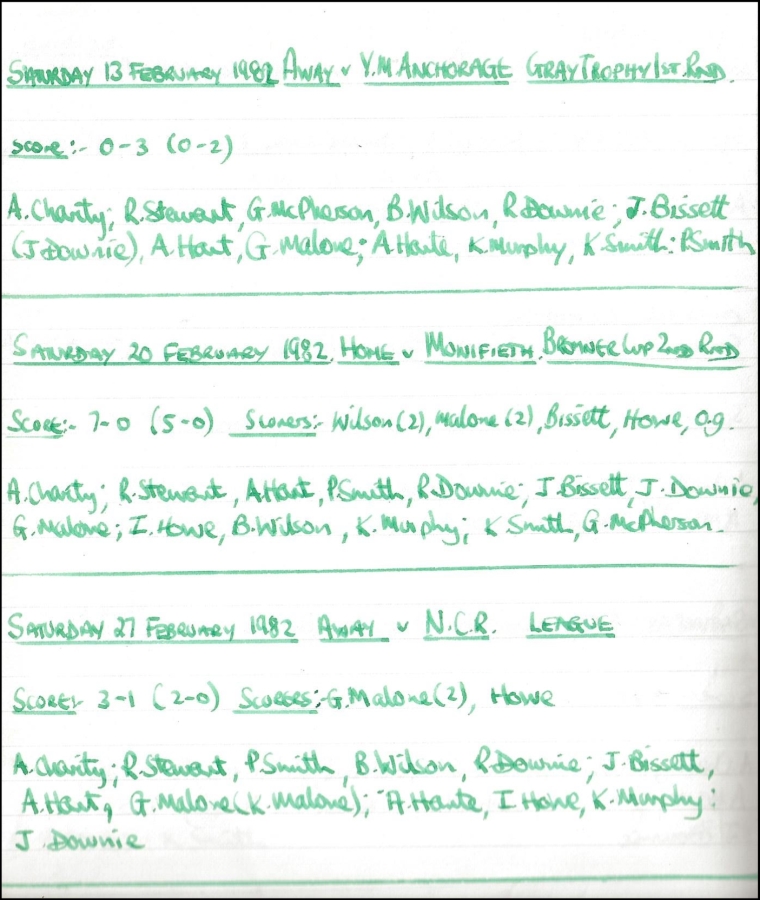 SATURDAY 13 FEBRUARY 1982 AWAY v Y.M ANCHORAGE GRAY TROPHY 1ST RND.
SCORE:- 0-3 (0-2)
A. Charity; R. Stewart, G. McPherson, B. Wilson, R. Downie; J. Bissett
(J Downie), A. Hart, G. Malone; A Harte, K. Murphy, K. Smith: P. Smith
SATURDAY 20 FEBRUARY 1982. HOME v MONIFIETH. BRONNER CUP 2ND RND
SCORE:- 7-0 (5-0) Scorers:- Wilson (2), Malone (2), Bissett, Howe, o.g.
A. Charity; R. Stewart, A. Hart, P. Smith, R. Downie; J. Bissett, J. Downie,
G. Malone; I. Howe, B. Wilson, K. Murphy; K Smith, G. McPherson.
SATURDAY 27 FEBRUARY 1982 AWAY v N.C.R. LEAGUE
SCORE:- 3-1 (2-0) SCORERS:- G. Malone (2), Howe
A. Charity; R. Stewart, P. Smith, B. Wilson, R Downie; J. Bissett,
A. Hart, G. Malone (K. Malone); A. Harte, I Howe, K. Murphy:
J. Downie